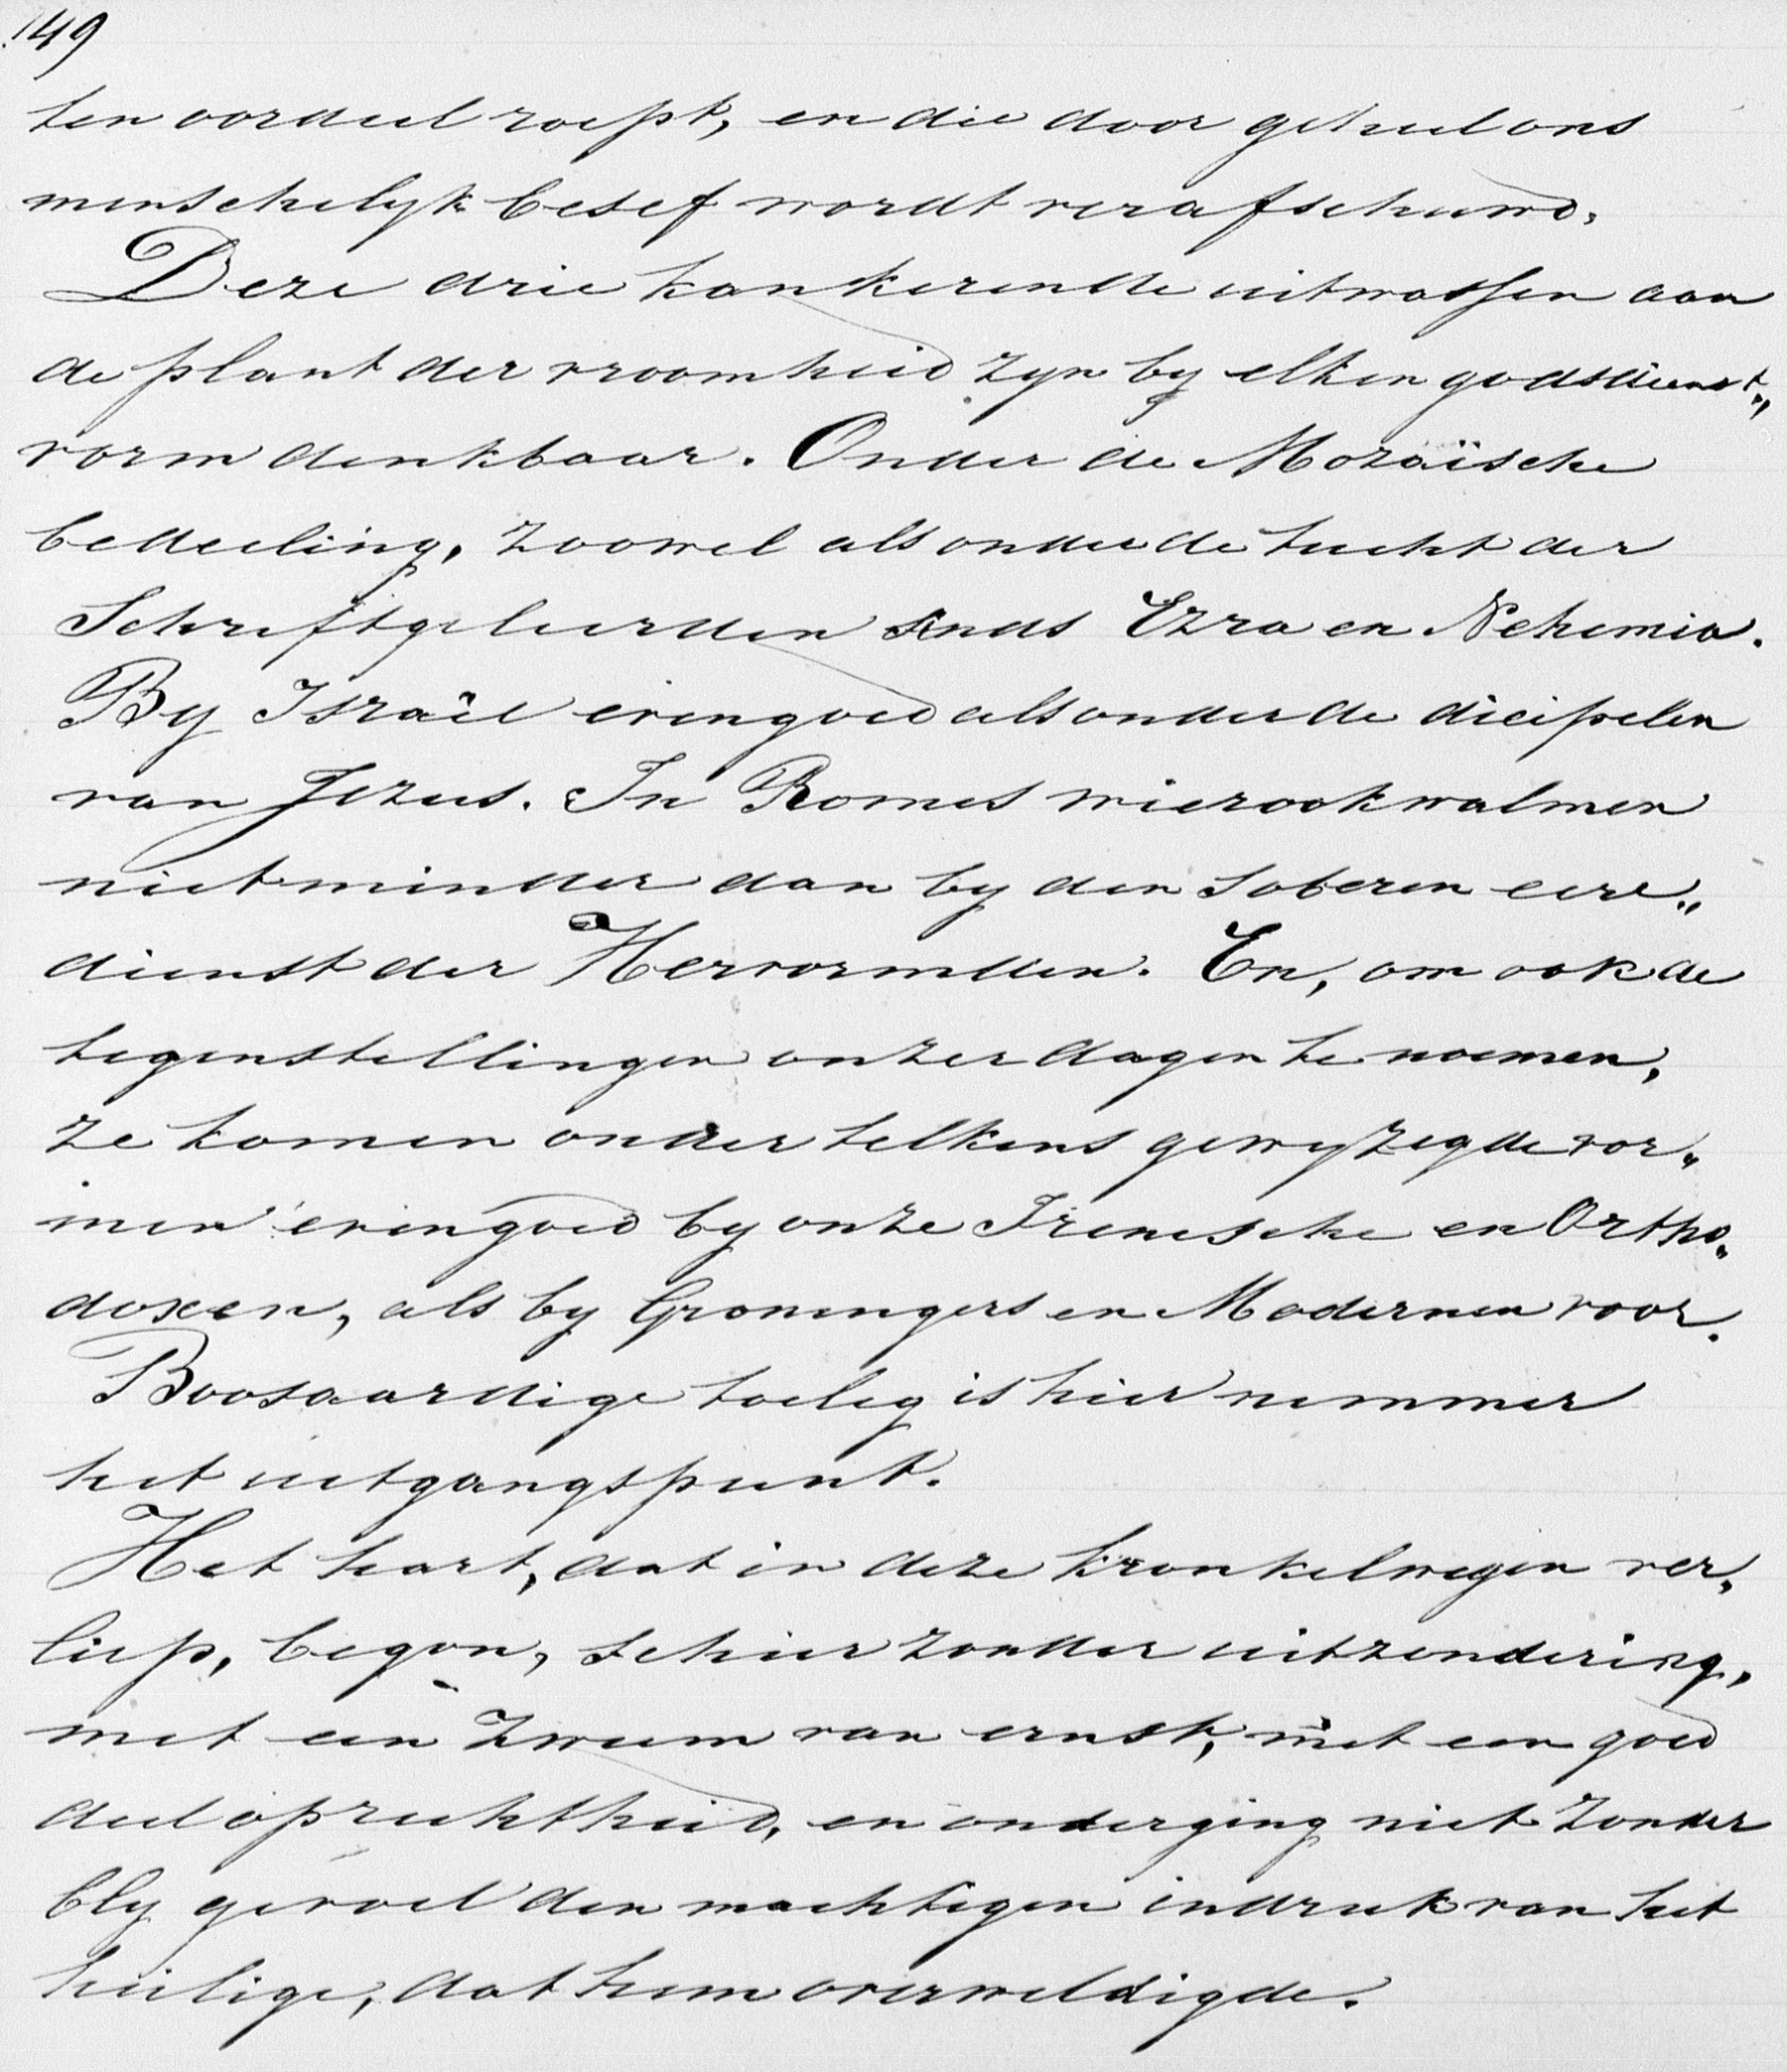 149
ten oordeel roept, en die door geheel ons
menschelyk besef wordt verafschuwd.
Deze drie kankerende uitwassen aan
de plant der vroomheid zyn by elken godsdienst„
vorm denkbaar. Onder de Mozaïsche
bedeeling, zoowel als onder de tucht der
Schriftgeleerden sinds Ezra en Nehemia.
By Israël evengoed als onder de dicipelen
van Jezus. In Romes wierookwalmen
niet minder dan by den soberen eere„
dienst der Hervormden. En, om ook de
tegenstellingen onzer dagen te noemen,
ze komen onder telkens gewyzigde vor„
men evengoed by onze Irenische en Ortho„
doxen, als by Groningers en Modernen voor.
Boosaardige toeleg is hier nimmer
het uitgangspunt.
Het hart, dat in deze kronkelwegen ver„
liep, begon, schier zonder uitzondering,
met een zweem van ernst, met een goed
deel oprechtheid, en onderging niet zonder
bly gevoel den machtigen indruk van het
heilige, dat hem overweldigde.